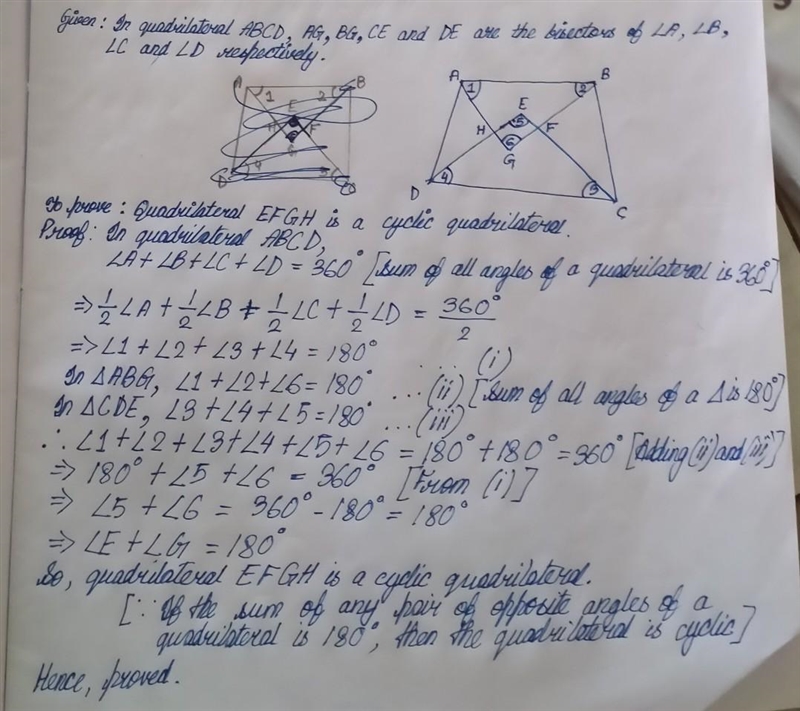 Given: In quadrilateral ABCD, AG, BG, CE and DE are the bisectors of ∠A, ∠B,
∠C and ∠D respectively.
A B
1 2
E
H F
G
D 4 3
A B
1 2
E
5
H F
6
G
D 4 3
C
To prove: Quadrilateral EFGH is a cyclic quadrilateral.
Proof: In quadrilateral ABCD,
∠A + ∠B + ∠C + ∠D = 360° [Sum of all angles of a quadrilateral is 360°]
⇒ 1/2 ∠A + 1/2 ∠B + 1/2 ∠C + 1/2 ∠D = 360°/2
⇒ ∠1 + ∠2 + ∠3 + ∠4 = 180° .... (i)
In ΔABG, ∠1 + ∠2 + ∠6 = 180° ...(ii) [Sum of all angles of a Δ is 180°]
In ΔCDE, ∠3 + ∠4 + ∠5 = 180° ...(iii)
∴ ∠1 + ∠2 + ∠3 + ∠4 + ∠5 + ∠6 = 180° + 180° = 360° [Adding (ii) and (iii)]
⇒ 180° + ∠5 + ∠6 = 360° [From (i)]
⇒ ∠5 + ∠6 = 360° - 180° = 180°
⇒ ∠E + ∠G = 180°
So, quadrilateral EFGH is a cyclic quadrilateral.
[∵ If the sum of any pair of opposite angles of a
quadrilateral is 180°, then the quadrilateral is cyclic]
Hence, proved.